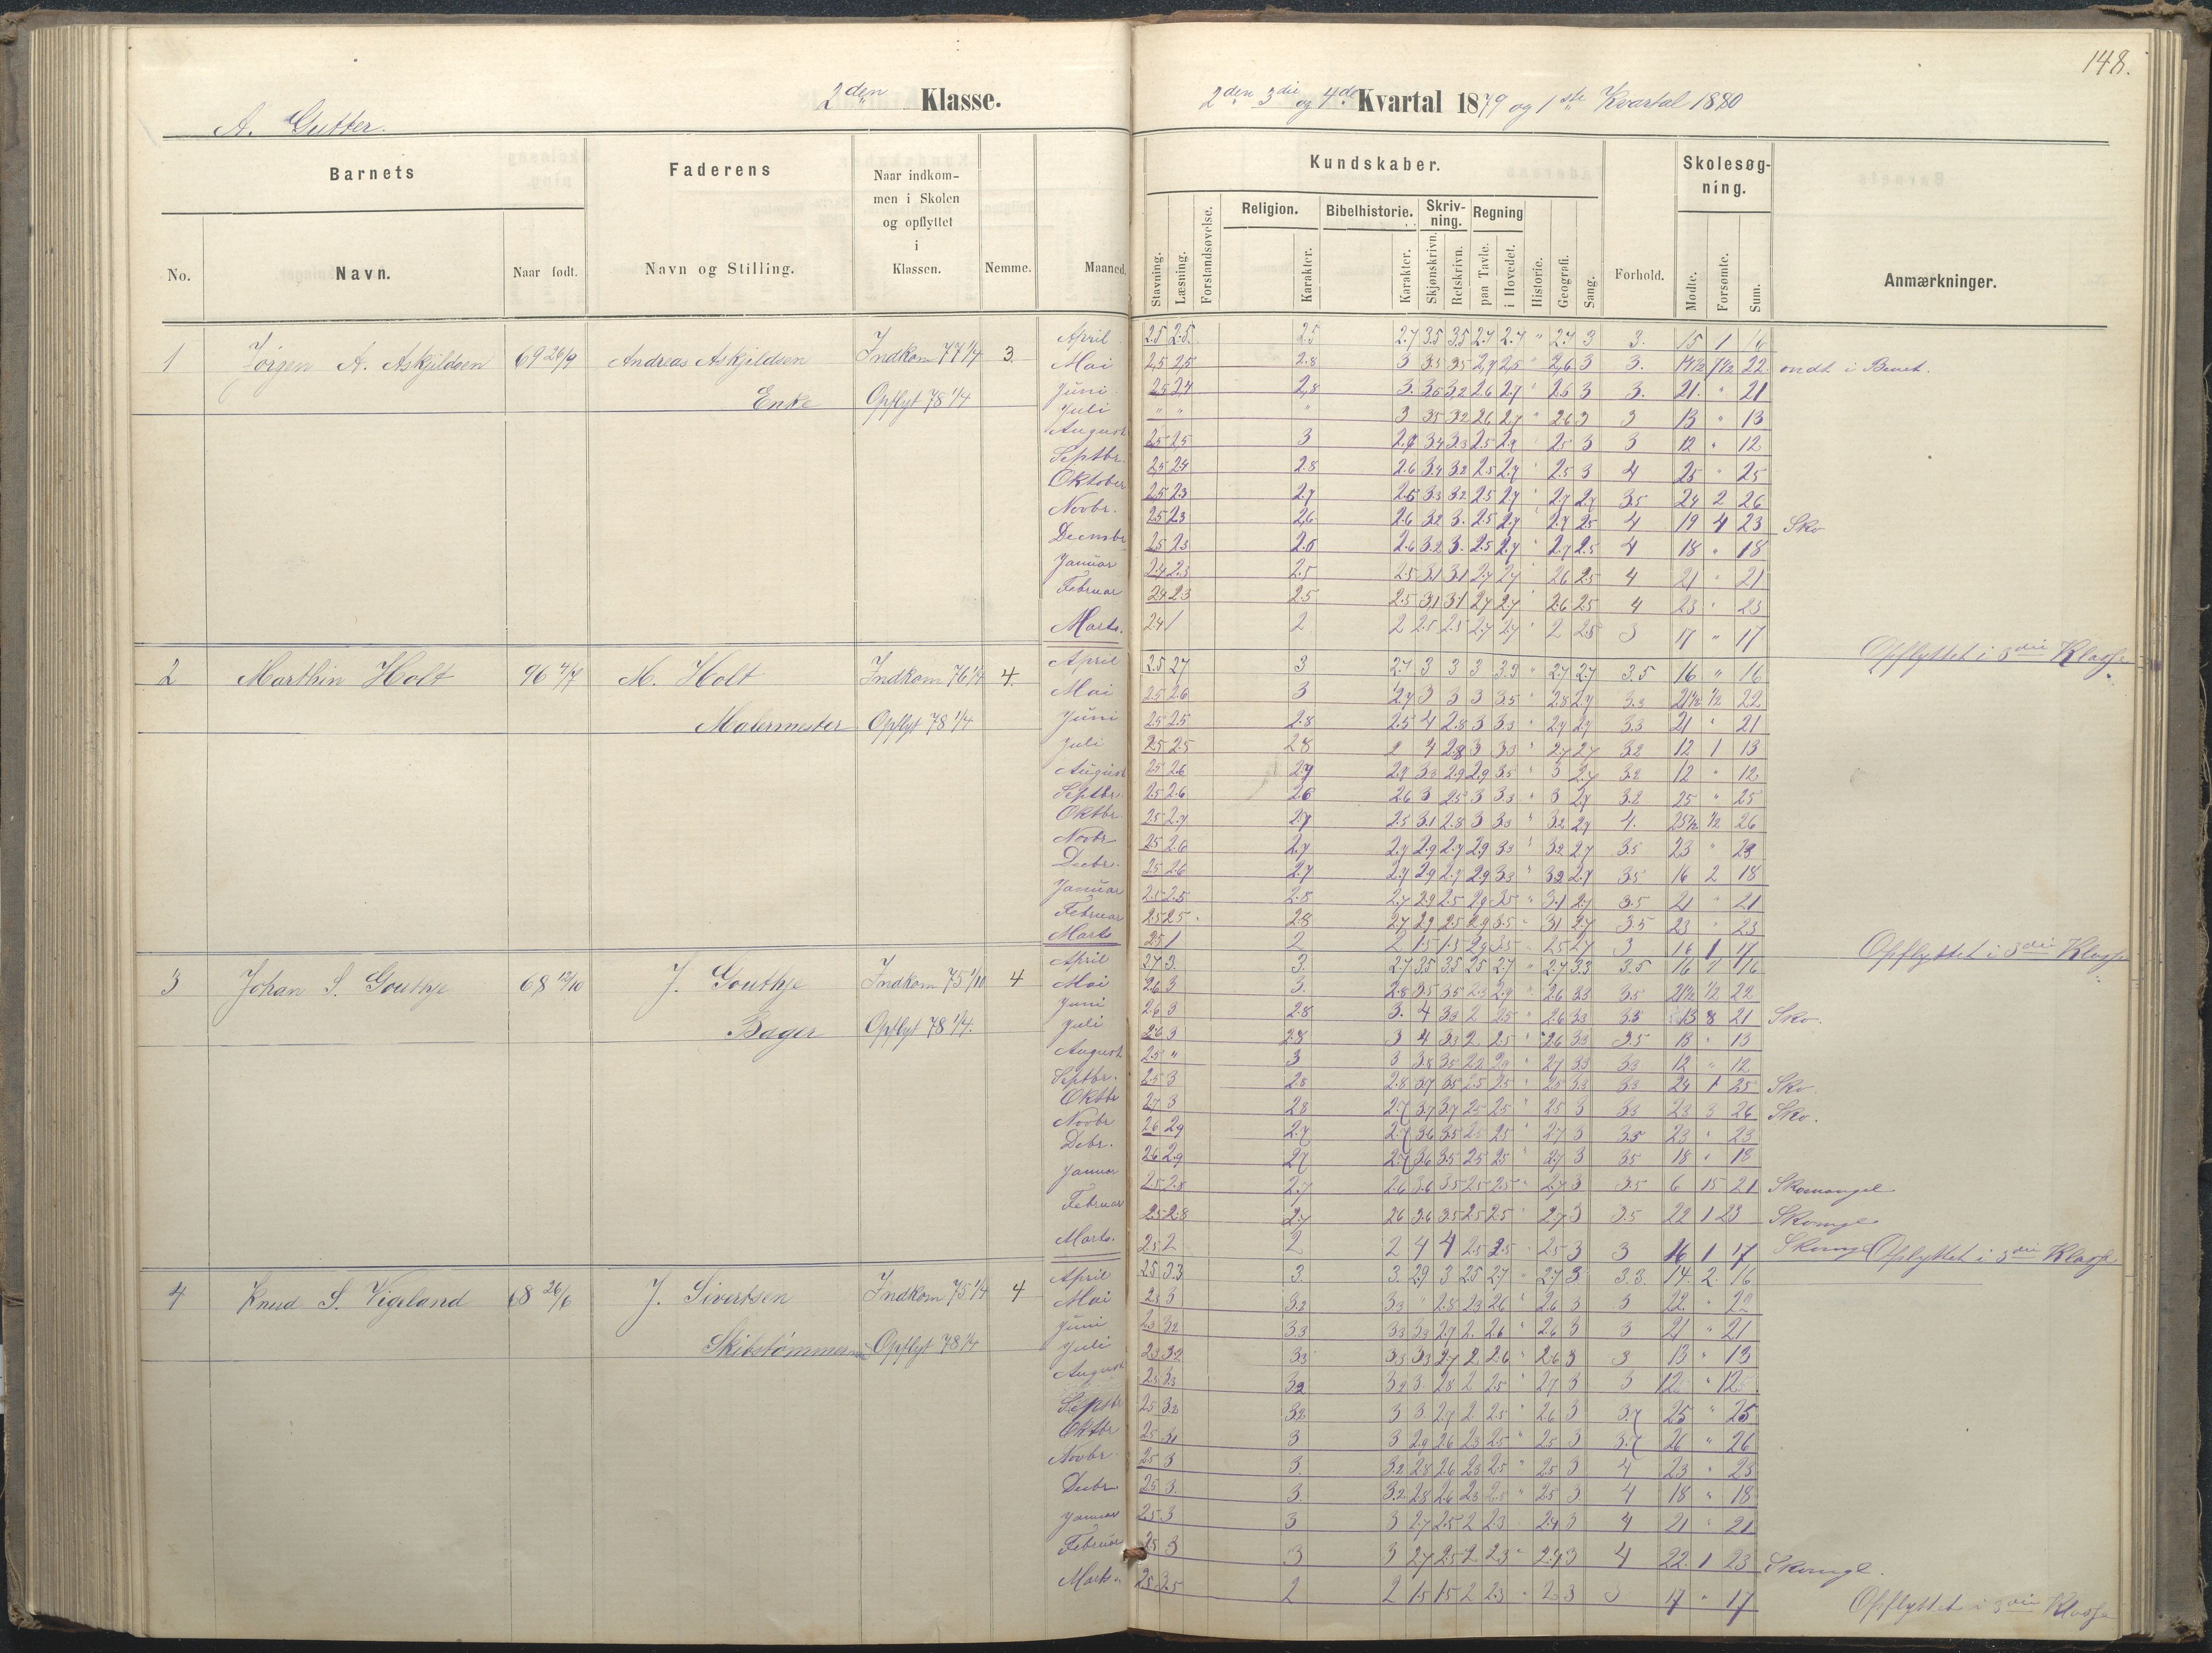 148.
2den Klasse.
2den 3die og 4de Kvartal 1879 og 1ste Kvartal 1880
A. Gutter.
Barnets
Faderens
Naar indkommen i Skolen og opflyttet i Klassen.
Nemme.
Maaned.
Kundskaber.
Forhold.
Skolesøgning.
Anmærkninger.
No.
Navn.
Naar født.
Navn og Stilling.
Stavning.
Læsning.
Forstandsøvelse.
Religion.
Karakter.
Bibelhistorie.
Karakter.
Skrivning.
Skjønskrivn.
Retskrivn.
Regning
paa Tavle.
i Hovedet.
Historie.
Geografi.
Sang.
Mødte.
Forsømte.
Sum.
1 Jørgen A. Askjildsen 69 26/9 Andreas Askjildsen Indkom 77 1/4 3.
Enke Opflyt 78 1/4
April 2.5 2.5. 2.5 2.7 3.5 3.5 2.7 2.7 " 2.7 3 3. 15 1 16
Mai 2,5 2,5 2.8 3 3.5 3.5 2,7 2,5 " 2,6 3 3. 14 1/2 7 1/2 22 ondt i Benet.
Juni 3. 21. " 21
Juli 3 13 " 13
August 3 12 " 12
Septbr. 2.5 2.4 2.8 2.6 3.4 3.2 2.5 2.7 " 2.5 3 4 25 " 25
Oktober 2.5 2.3 2.7 2.6 3.3 3.2 2.5 2.7 " 2.7 2.7 3.5 24 2 26
Novbr. 2.5 2.3 2.6 2.6 3.2 3. 2.5 2.7 " 2.7 2.5 4 19 4 23 Sko
Decembr 2.6 3.2 3. 2.5 2.7 " 2.7 2.5 4 18 " 18
Januar 2.4 2.3 2.5 2.5 3.1 3.1 2.7 2.7 " 2.6 2.5 4 21 " 21
Februar 2.4 2.3 2.5 2.5 3.1 3.1 2.7 2.7 " 2.6 2.5 4 23 " 23
Marts. 2.4 1 2 2 2.5 2.5 2.7 2.7 " 2 2.5 3 17 " 17
Opflyttet i 3die Klasse
2 Marthin Holt M. Holt Indkom 76 1/4 4.
Malermester Opflyt 78 1/4
April 2.5 2.7 3 2.7 3 3 3 3.3 " 2.7 2.7 3.5 16 " 16
Mai 2.5 2.6 3 2.7 3 3 3 3.5 " 2.8 2.7 3.3 21 1/2 1/2 22
Juni 2.5 2.5 2.8 2.5 4 2.8 3 3.3 " 2.7 2.7 3.3 21 " 21
Juli 2.5 2.5 2.8 3.2 12 1 13
August 2.5 2.6 3.2 12 " 12
Septbr. 2.5 2.6 2.6 2.6 3 2.5 3 3.3 " 3 2.7 3.2 25 " 25
Oktbr. 2.5 2.7 2.7 2.5 3.1 2.8 3 3.3 " 3.2 2.7 4. 25 1/2 1/2 26
Novbr 2.5 2.6 2.7 2.7 2.9 2.7 2.9 3.3 " 3.2 2.7 3.5 23 " 23
Decbr. 2.5 2.6 2.7 2.7 2.9 2.7 2.9 3.3 " 3.2 2.7 3.5 16 2 18
Januar 2.5 2.5 2.8 2.7 2.9 2.5 2.9 3.5 " 3.1 2.7 3.5 21 " 21
Februar 2.5 2.5. 2.8 2.7 2.9 2.5 2.9 3.5 " 3.1 2.7 3.5 23 " 23
Marts 2.5 1 2 2 1.5 1.5 2.9 3.5 " 2.5 2.7 3 16 1 17
Opflyttet i 3die Klasse
3 Johan S. Gouthje 68 12/10 J. Gouthje Indkom 75 1/10 4
Bager Opflyt 78 1/4.
April 2.7 3. 3. 2.7 3.5 3.5 2.5 2.7 " 2.7 3.3 3.5 16 " 16
Mai 2.6 3 3. 2.8 3.5 3.5 2.3 2.9 " 2.6 3.3 3.5 21 1/2 1/2 22
Juni 2.6 3 2.8 3. 4 3.3 2 2.5 " 2.6 3.3 3.5 13 8 21 Sko.
Juli 2.6 3 2.8 3 4 3.3 2 2.5 " 2.6 3.3 3.5 13 " 13
August 2.5 " 3 3 3.8 3.5 2.2 2.9 " 2.7 3.3 3.3 12 " 12
Septbr. 2.5 3 2.8 2.8 3.7 3.5 2.5 2.5 " 2.5 3.3 3.3 24 1 25 Sko
Oktbr 2.7 3 2.8 2.7 3.7 3.7 2.5 2.5 " 2.5 3 3.3 23 3 26 Sko.
Novbr 2.6 2.9 2.7 2.7 3.6 3.5 2.5 2.5 " 2.7 3 3.5 23 " 23
Debr. 2.6 2.9 2.7 2.7 3.6 3.5 2.5 2.5 " 2.7 3 3.5 18 " 18
Januar 2.5 2.8 2.7 2.6 3.6 3.5 2.5 2.5 " 2.7 3 3.5 6 15 21 Skomangel
Februar 2.5 2.8 2.7 2.6 3.6 3.5 2.5 2.5 " 2.7 3 3.5 22 1 23 Skomgl
Marts. 2.5 2 2 2 4 4 2.5 2.5 " 2.5 3 3 16 1 17 Skomgl Opflyttet i 3die Klasse
4 Knud S. Vigeland 68 26/6 J. Sivertsen Indkom 75 1/4 4
Skibstømmerm Opflyt 78 1/4
April 2.5 3.3 3. 3. 2.9 3 2.5 2.7 " 2.7 3 3.3. 14. 2. 16
Mai 2.3 3 3.2 3.3 " 2.8 2.3 2.6 " 2.6 3 3 22. " 22
Juni 2.3 3.2 3.3 3.3 3.3 2.7 2. 2.6 " 2.6 3 3 21 " 21
Juli 2.3 3.2 3.3 3.3 3.3 2.7 2 2.6 " 2.6 3 3 13 " 13
August 2.3 3.3 3.2 3.2 3 2.8 2 2.5 " 2.7 3 3 12 " 12
Septbr 2.5 3.2 3.2 3 3 2.7 2 2.5 " 2.6 3 3.7 25 " 25
Oktbr 2.5 3.1 3 3 2.9 2.6 2.3 2.5 " 2.5 3 3.7 26 " 26
Novbr 2.5 3 3. 3.2 2.8 2.6 2.3 2.5 " 2.5 3 4 23 " 23
Decbr 2.5 3. 3. 3.2 2.8 2.6 2.3 2.5 " 2.5 3 4 18 " 18
Januar 2.5 3 3 3 2.7 2.5 2 2.3 2.4 3 4 21 " 21
Februar 2.5 3 3 3 2.7 2.5 2 2.3 " 2.4 3 4 22. 1 23 Skomgl.
Marts. 2.5 2.5 2 2 1.5 1.5 2 2.3 " 2 3 3 17 " 17
Opflyttet i 3die Klasse